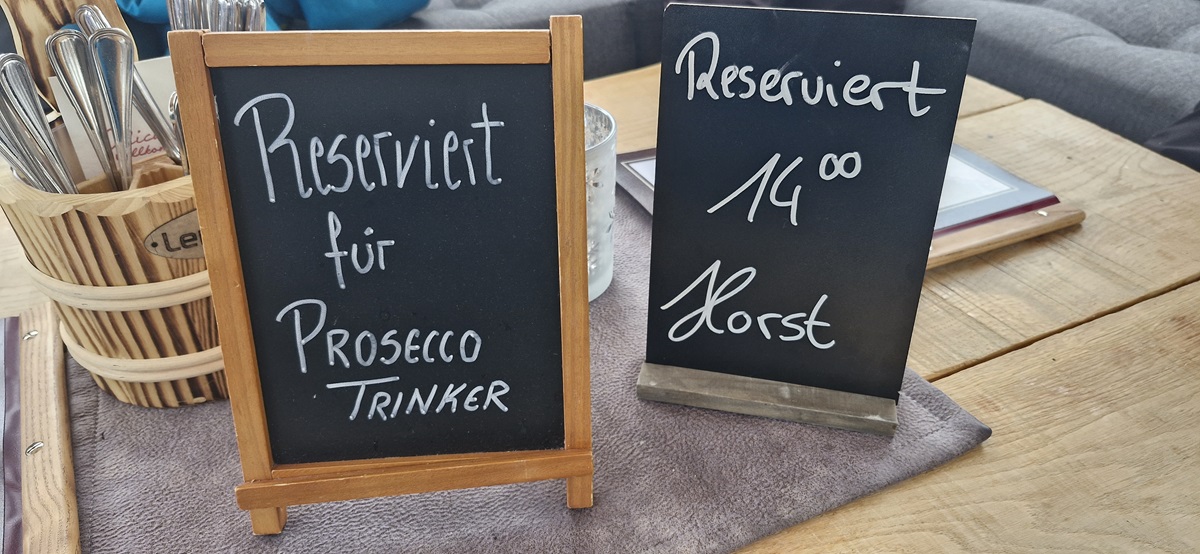 Reserviert
für
PROSECCO
TRINKER
Reserviert
14⁰⁰
Horst